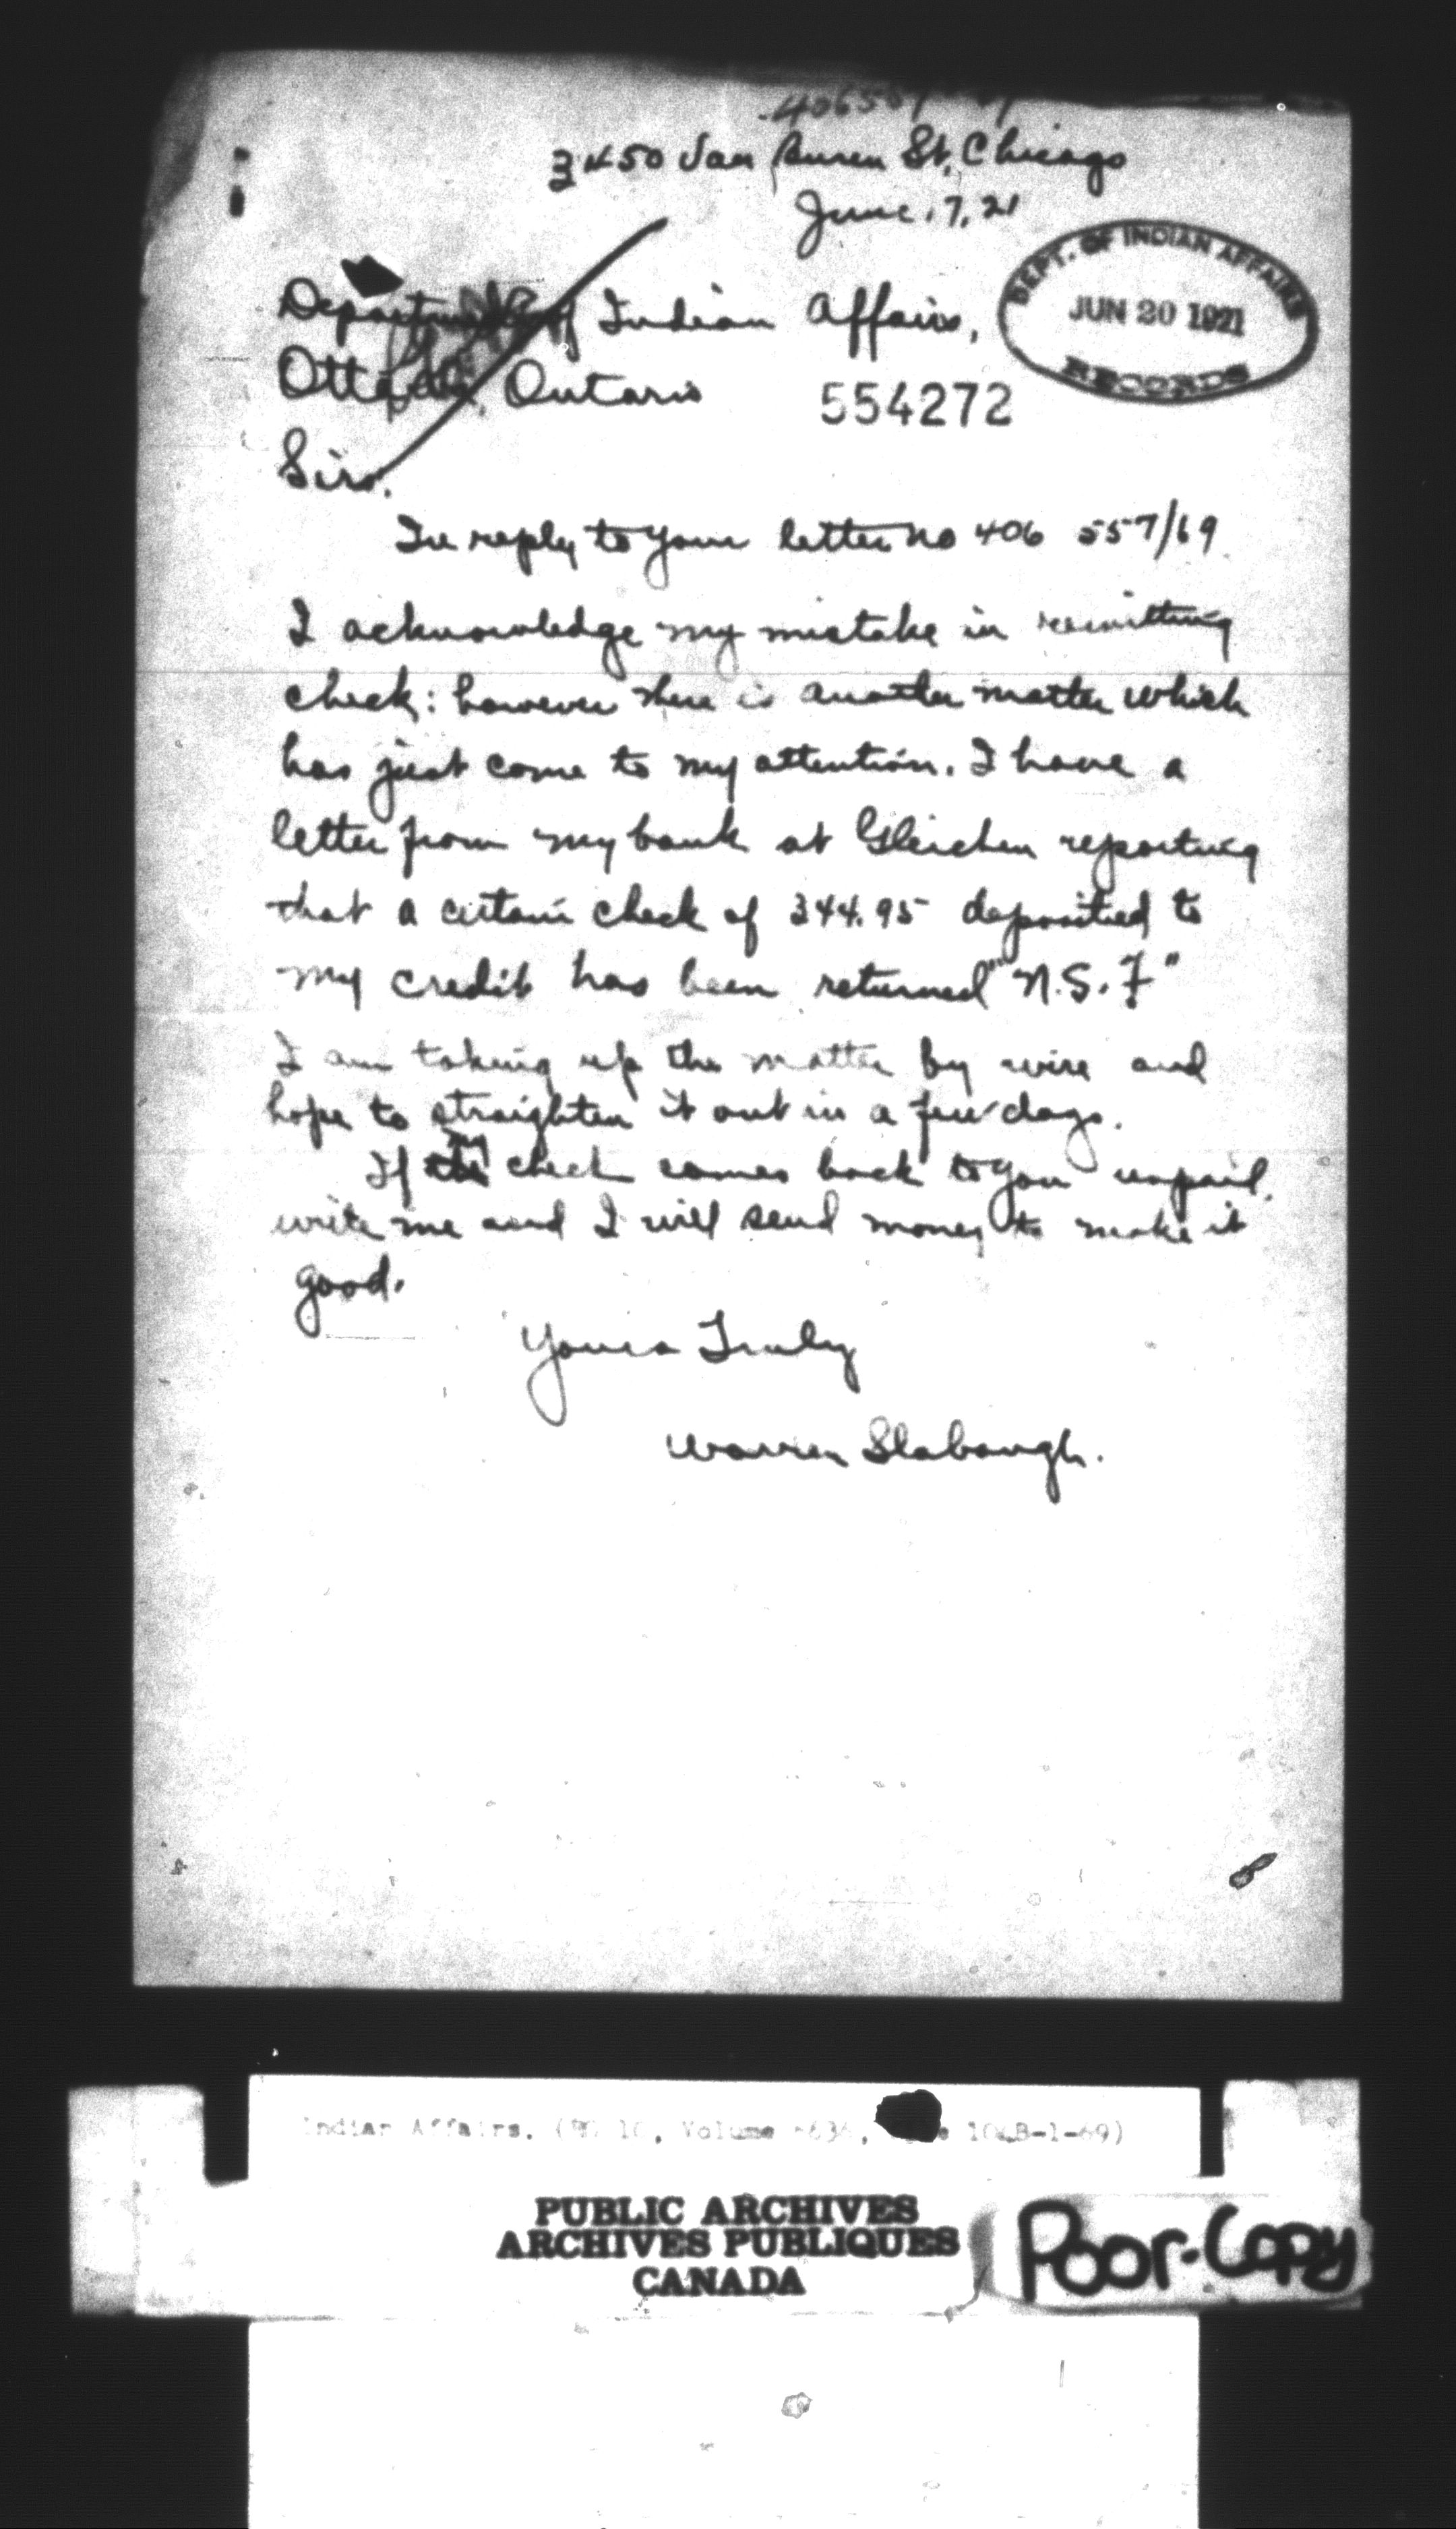 3450 Van Buren St, Chicago
June, 17, 21
DEPT. OF INDIAN AFFAIRS
JUN 20 1921
RECORDS
Department of Indian Affairs,
Ottawa, Ontario
554272
Sirs.
In reply to your letter no 406 557/69
I acknowledge my mistake in remitting
check: however there is another matter which
has just come to my attention. I have a
letter from my bank at Gleichen reporting
that a certain check of 344.95 deposited to
my credit has been returned "N.S.F"
I am taking up the matter by wire and
hope to straighten it out in a few days.
If my check comes back to you unpaid,
write me and I will send money to make it
good.
Yours Truly
Warren Slabaugh.
Indian Affairs. (RG 10, Volume 1-69)
PUBLIC ARCHIVES
ARCHIVES PUBLIQUES
CANADA
Poor-Copy